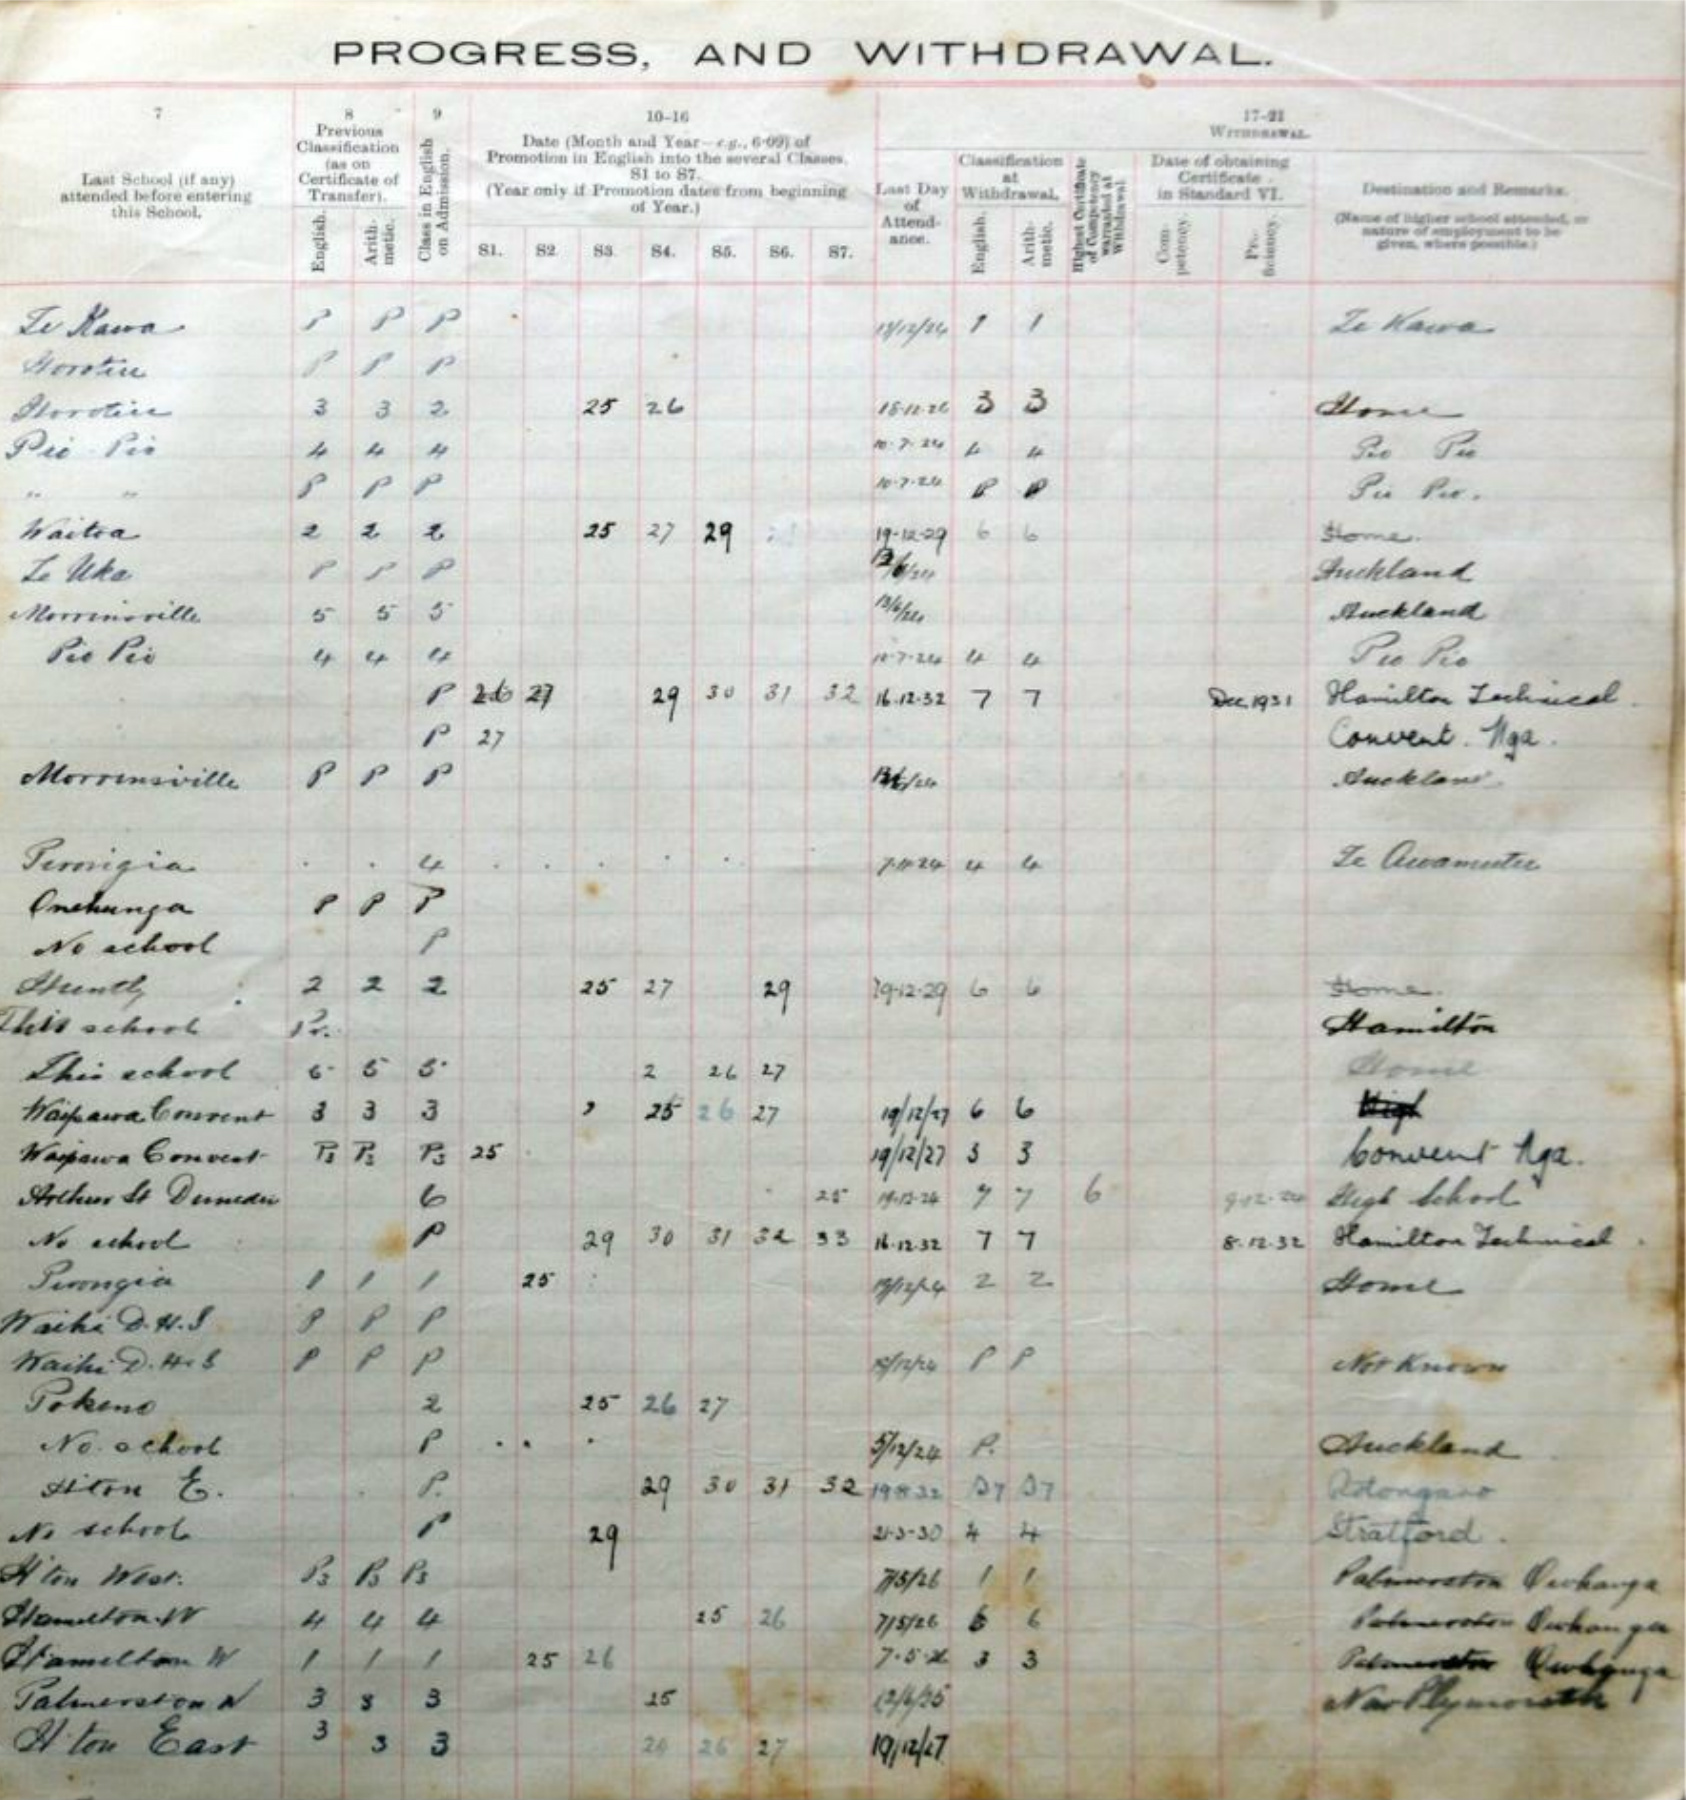 PROGRESS, AND WITHDRAWAL.
7 8 9 10–16 17–21
Last School (if any) attended before entering this School.
Previous Classification (as on Certificate of Transfer).
English. Arith-metic.
Class in English on Admission.
Date (Month and Year—e.g., 6·09) of Promotion in English into the several Classes, S1 to S7.
(Year only if Promotion dates from beginning of Year.)
S1. S2 S3. S4. S5. S6. S7.
WITHDRAWAL.
Last Day of Attend-ance.
Classification at Withdrawal.
English. Arith-metic.
Highest Certificate of Competency warranted at Withdrawal.
Date of obtaining Certificate in Standard VI.
Com-petency. Pro-ficiency.
Destination and Remarks.
(Name of higher school attended, or nature of employment to be given, where possible.)
Te Kawa P P P 1 1 Te Kawa
Horotiu P P P
Horotiu 3 3 2 25 26 3 3 Home
Pio Pio 4 4 4 10-7-24 4 4 Pio Pio
" " P P P 10-7-24 P P Pio Pio.
Waitoa 2 2 2 25 27 29 19-12-29 6 6 Home.
Te Uku P P P Auckland
Morrinsville 5 5 5 13/6/24 Auckland
Pio Pio 4 4 4 10-7-24 4 4 Pio Pio
P 26 27 29 30 31 32 16.12.32 7 7 Dec. 1931 Hamilton Technical
P 27 Convent. Nga.
Morrinsville P P P Auckland
Pirongia 4 4 4 Te Awamutu
Onehunga P P P
No school P
Huntly 2 2 2 25 27 29 19-12-29 6 6 Home.
This school Pr.
Hamilton
This school 5 5 5 2 26 27 Home
Waipawa Convent 3 3 3 25 26 27 19/12/27 6 6 High
Waipawa Convent P3 P3 P3 25 19/12/27 3 3 Convent Nga.
Arthur St Dunedin 6 25 7 7 6 9-12-24 High School
No school P 29 30 31 32 33 16.12.32 7 7 8.12.32 Hamilton Technical
Pirongia 1 1 1 25 19/12/24 2 2 Home
Waihi D.H.S P P P
Waihi D.H.S P P P P P Not Known
Pokeno 2 25 26 27
No school P 5/12/24 P. Auckland
Hton E. P. 29 30 31 32 19.8.32 S7 S7
No school P 29 21-3-30 4 4 Stratford.
H'ton West. P3 P3 P3 7/5/26 1 1 Palmerston Owhango
Hamilton W 4 4 4 25 26 7/5/26 6 6 Palmerston Owhango
Hamilton W 1 1 1 25 26 7-5-26 3 3 Palmerston Owhango
Palmerston N 3 3 3 25 New Plymouth
H'ton East 3 3 3 26 27 19/12/27